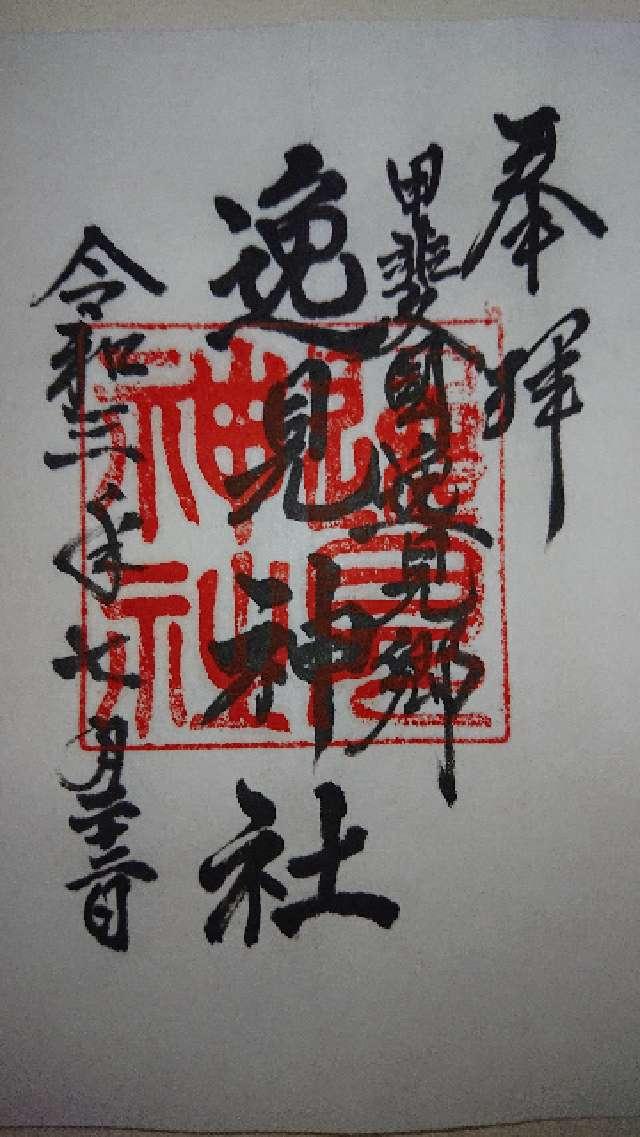 奉拝
甲斐国逸見郷
逸見神社
令和三年七月廿二日
逸見神社